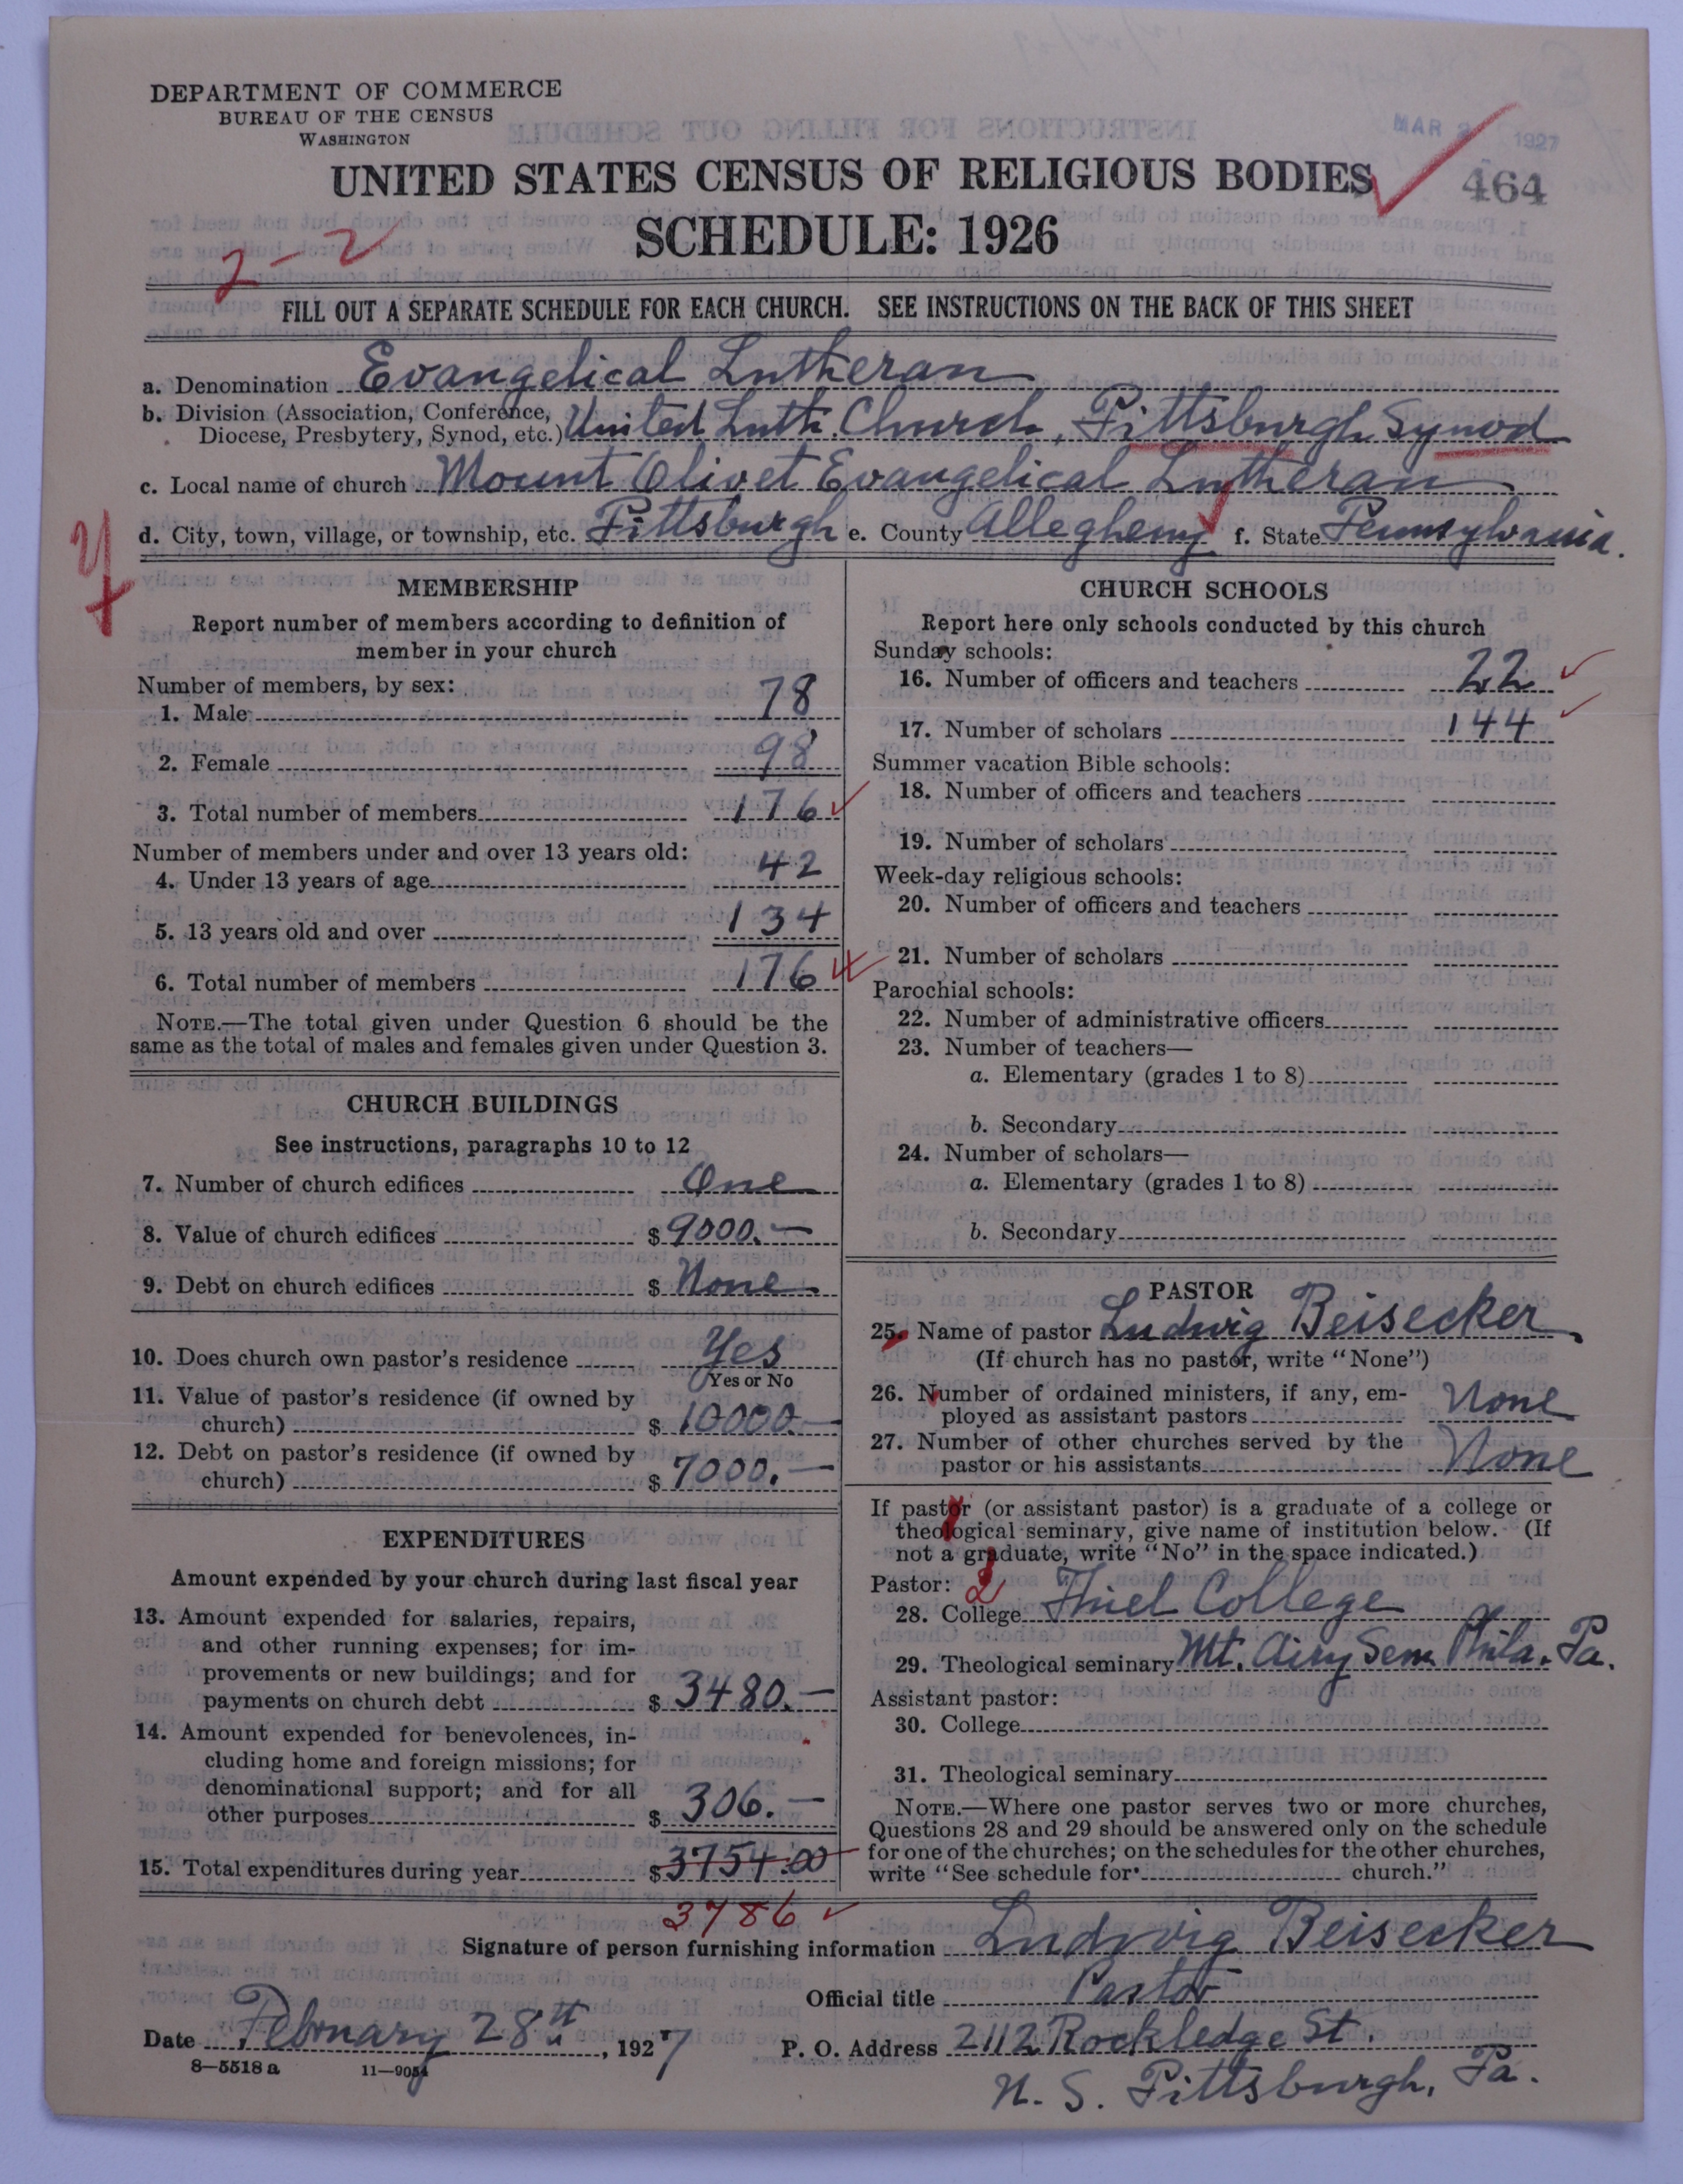 DEPARTMENT OF COMMERCE
BUREAU OF THE CENSUS
WASHINGTON
MAR 2 1927
UNITED STATES CENSUS OF RELIGIOUS BODIES
464
SCHEDULE: 1926
2-2
FILL OUT A SEPARATE SCHEDULE FOR EACH CHURCH. SEE INSTRUCTIONS ON THE BACK OF THIS SHEET
a. Denomination Evangelical Lutheran
b. Division (Association, Conference,
Diocese, Presbytery, Synod, etc.) United Luth. Church, Pittsburgh Synod
c. Local name of church Mount Olivet Evangelical Lutheran
d. City, town, village, or township, etc. Pittsburgh e. County Allegheny f. State Pennsylvania.
MEMBERSHIP
Report number of members according to definition of
member in your church
Number of members, by sex:
1. Male 78
2. Female 98
3. Total number of members 176
Number of members under and over 13 years old:
4. Under 13 years of age 42
5. 13 years old and over 134
6. Total number of members 176
NOTE.—The total given under Question 6 should be the
same as the total of males and females given under Question 3.
CHURCH BUILDINGS
See instructions, paragraphs 10 to 12
7. Number of church edifices One
8. Value of church edifices $ 9000.—
9. Debt on church edifices $ None
10. Does church own pastor's residence Yes
Yes or No
11. Value of pastor's residence (if owned by
church) $ 10000.—
12. Debt on pastor's residence (if owned by
church) $ 7000.—
EXPENDITURES
Amount expended by your church during last fiscal year
13. Amount expended for salaries, repairs,
and other running expenses; for im-
provements or new buildings; and for
payments on church debt $ 3480.—
14. Amount expended for benevolences, in-
cluding home and foreign missions; for
denominational support; and for all
other purposes $ 306.—
15. Total expenditures during year $ 3754.00
3786
CHURCH SCHOOLS
Report here only schools conducted by this church
Sunday schools:
16. Number of officers and teachers 22
17. Number of scholars 144
Summer vacation Bible schools:
18. Number of officers and teachers
19. Number of scholars
Week-day religious schools:
20. Number of officers and teachers
21. Number of scholars
Parochial schools:
22. Number of administrative officers
23. Number of teachers—
a. Elementary (grades 1 to 8)
b. Secondary
24. Number of scholars—
a. Elementary (grades 1 to 8)
b. Secondary
PASTOR
25. Name of pastor Ludwig Beisecker
(If church has no pastor, write "None")
26. Number of ordained ministers, if any, em-
ployed as assistant pastors None
27. Number of other churches served by the
pastor or his assistants None
If pastor (or assistant pastor) is a graduate of a college or
theological seminary, give name of institution below. (If
not a graduate, write "No" in the space indicated.)
Pastor: 2
28. College Thiel College
29. Theological seminary Mt. Airy Sem. Phila. Pa.
Assistant pastor:
30. College
31. Theological seminary
NOTE.—Where one pastor serves two or more churches,
Questions 28 and 29 should be answered only on the schedule
for one of the churches; on the schedules for the other churches,
write "See schedule for church."
Signature of person furnishing information Ludwig Beisecker
Official title Pastor
Date February 28th, 1927 P. O. Address 2112 Rockledge St.
8—5518 a 11—9054
N. S. Pittsburgh, Pa.